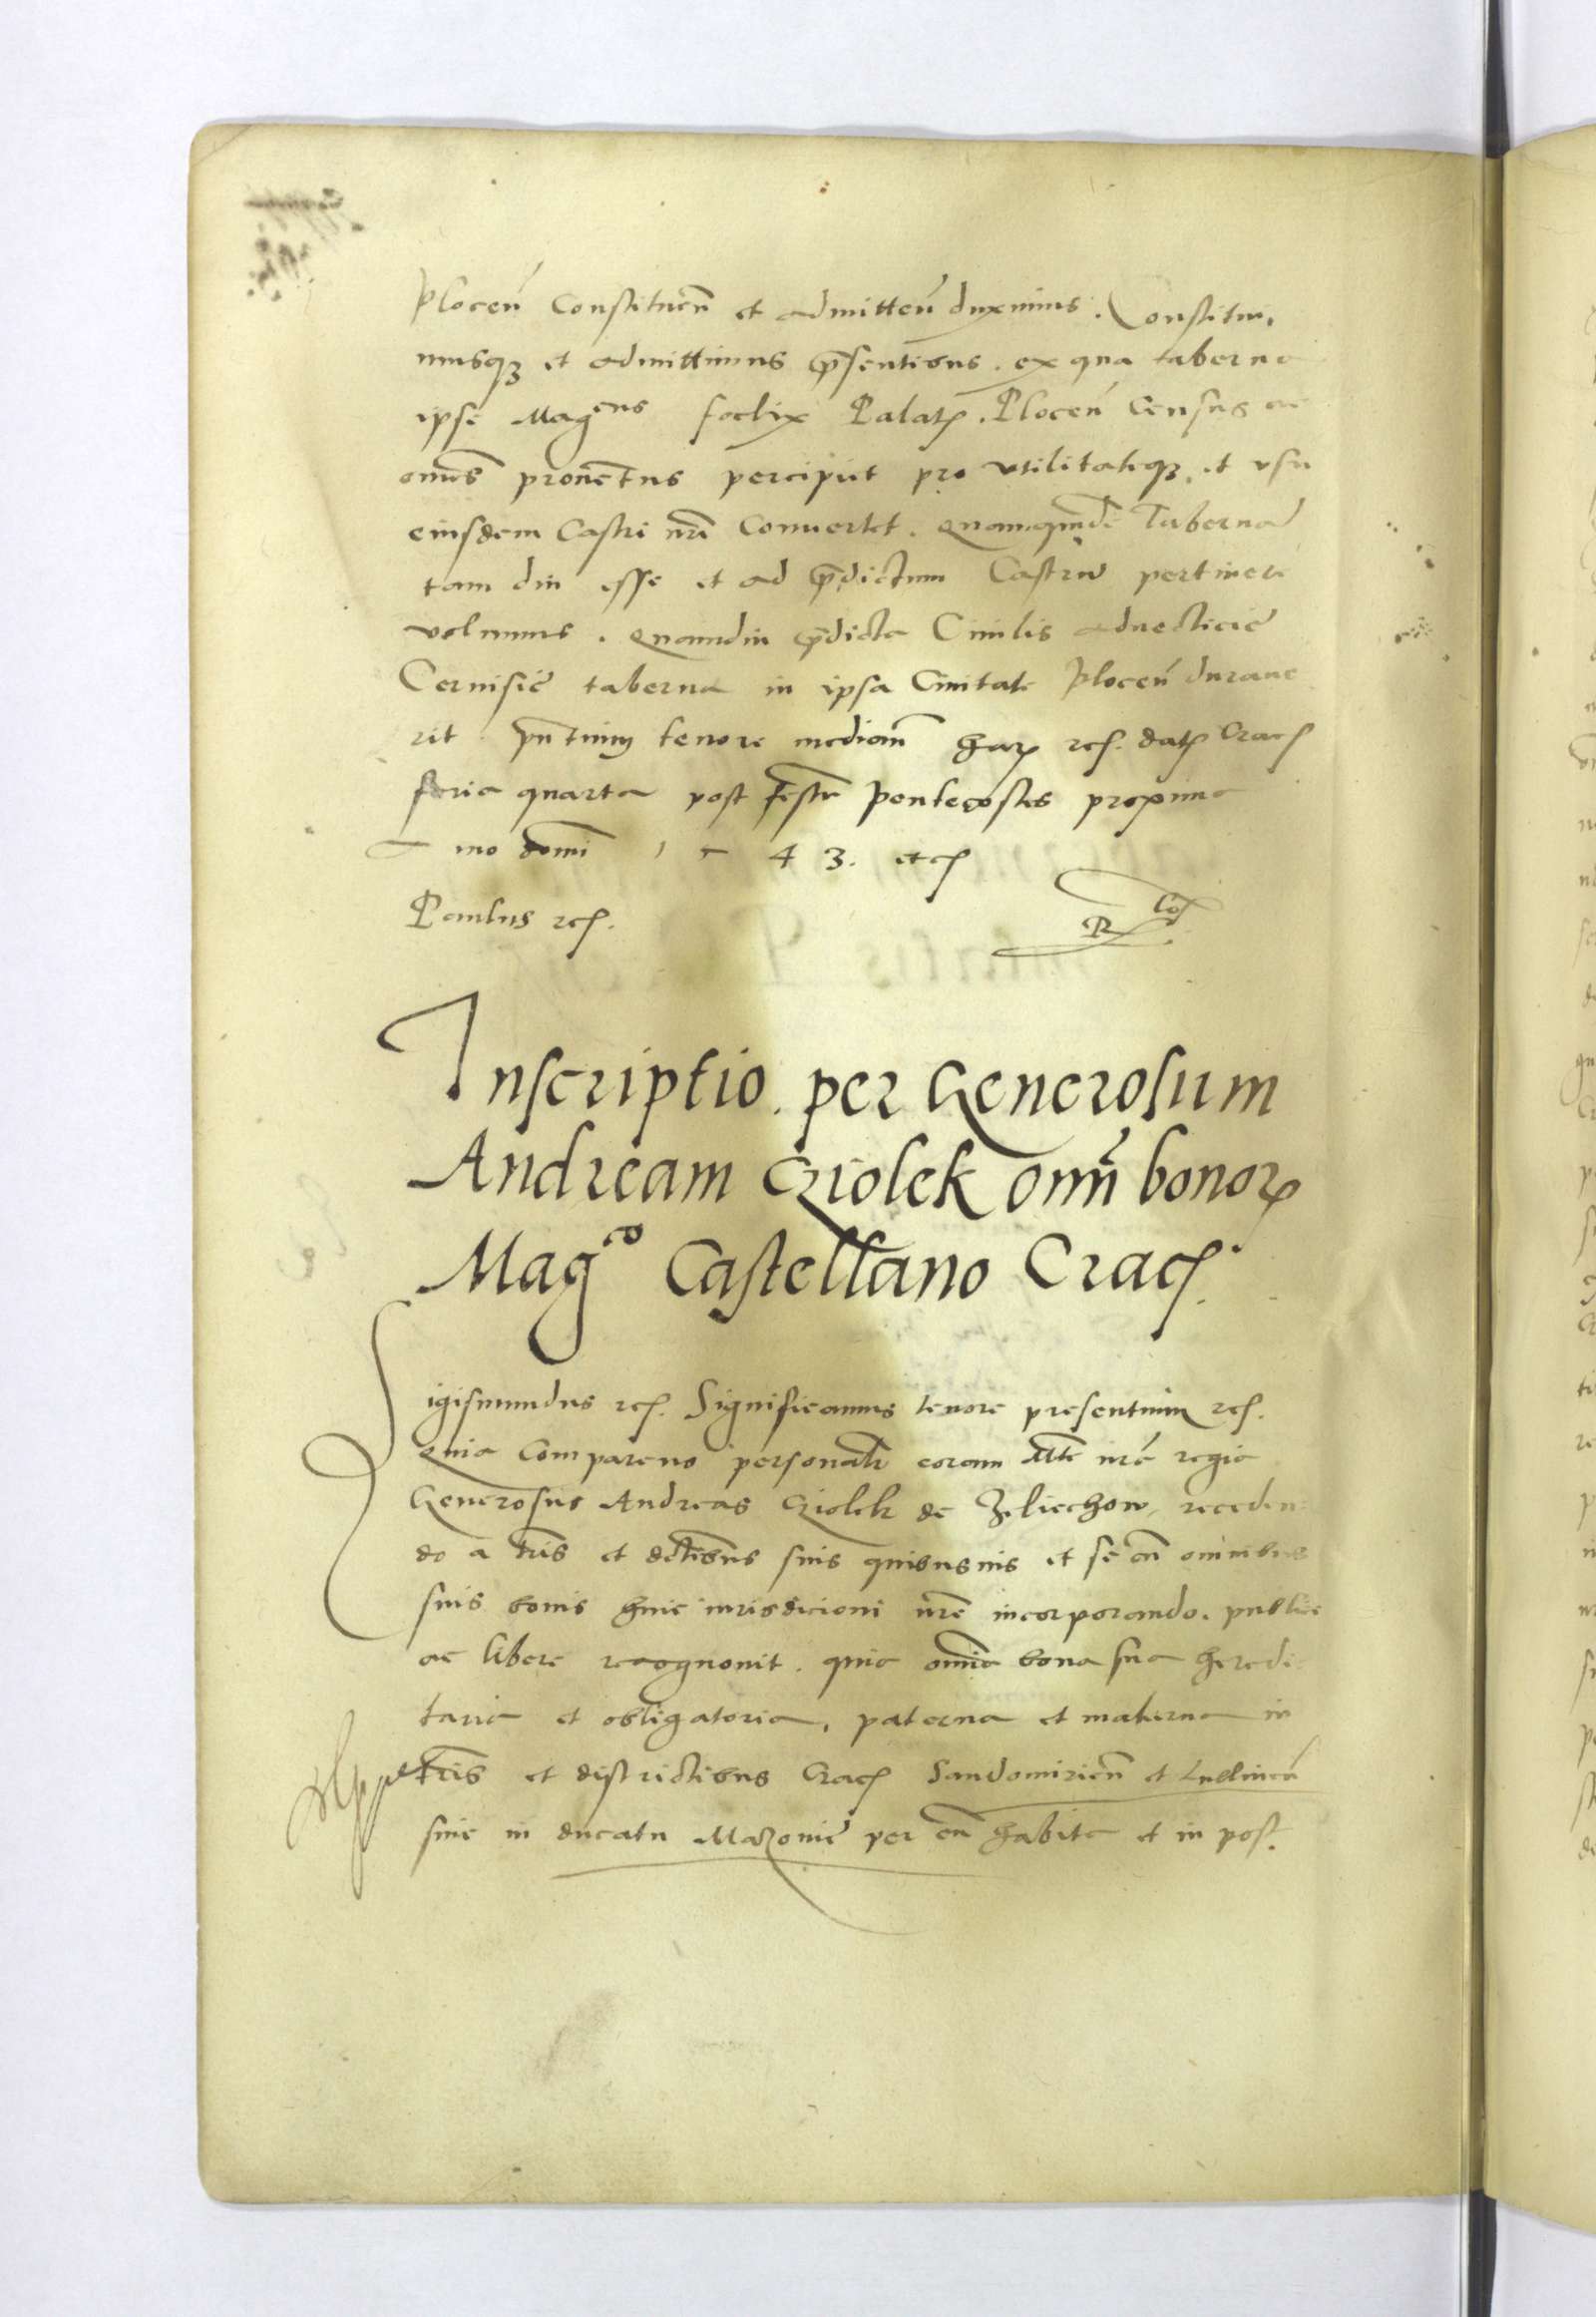 Plocen̄ Constituen̄ et admitten̄ duximus. Constitui,
musqꝫ et admittimus p̄sentibus. ex qua taberna
ipse Mag̃cus foelix Palatꝭ. Plocen̄ Census ac
om̄es prouētus percipiet pro vtilitateqꝫ. et vsu
eiusdem Castri nr̄i Conuertet. Quamquidē Tabernā
tam diu esse et ad p̄dictum Castrū pertinere
volumus. Quamdiu p̄dicta Ciuilis aduecticie
Ceruisie taberna in ipsa Ciuitate Plocen̄ duraue
rit. pn̄tium tenore median̄ harꝭ rcꝭ. datꝭ Cracꝭ
feria quarta post festū Pentecostes proxima
Anno domī 1543. etcꝭ
Paulus rcꝭ.
Inscriptio. per Generosum
Andream Cziolek omn̄ bonorꝝ
Mag͡co Castellano Cracꝭ.
Sigismundus rcꝭ. Significamus tenore presentium rcꝭ.
Quia Comparens personalr̄ coram Mte nr̄a regia
Generosus Andreas Cziolek de Zeliechow, receden
do a tr̄is et dctibus suis quibusuis et se cū omnibus
suis bonis huic iurisdicioni nr̄e incorporando. publice
ac libere recognouit. quia om̄ia bona sua heredi
taria et obligatoria, paterna et materna in
tr̄is et districtibus Cracꝭ Sandomirien̄ et Lublinen̄
siue in ducatu Mazouie per eū habita et in pos.